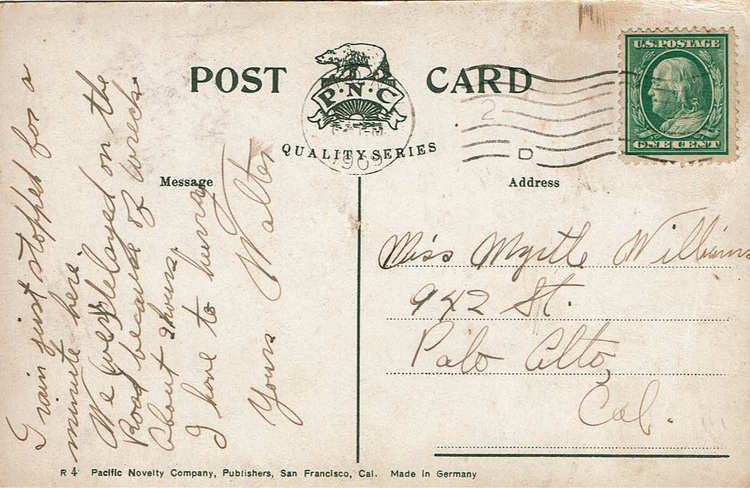 POST CARD
P.N.C
QUALITY SERIES
1909
2
D
U.S. POSTAGE
ONE CENT
Message
Address
Train just stopped for a
minute here.
We were delayed on the
Road because of wreck
About 2 hours.
I have to hurry
Yours Walter
Miss Myrtle Williams
942 St.
Palo Alto,
Cal.
R 4 Pacific Novelty Company, Publishers, San Francisco, Cal. Made in Germany